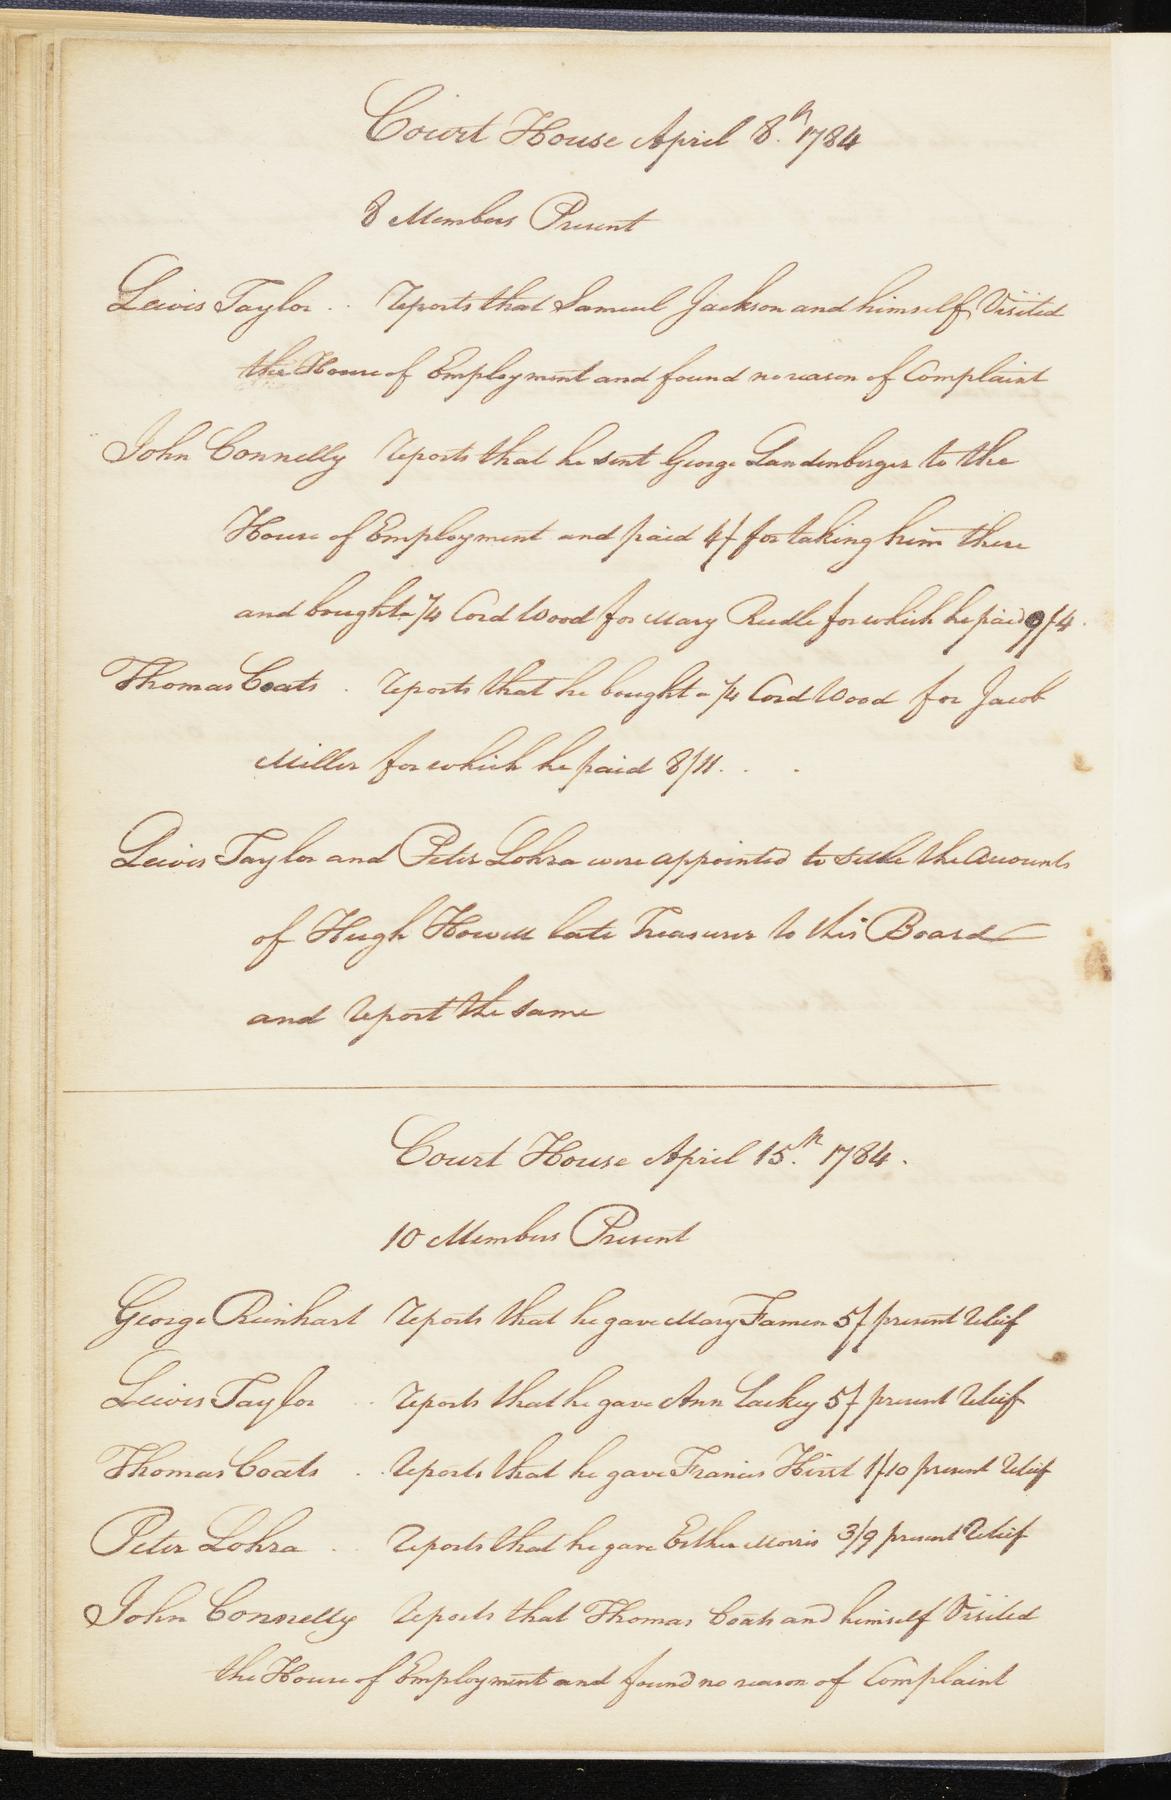 Court House April 8.th 1784
8 Members Present
Lewis Taylor . reports that Samuel Jackson and himself Visited
the House of Employment and found no reason of Complaint
John Connelly reports that he sent George Landenberger to the
House of Employment and paid 4/ for taking him there
and bought a 1/4 Cord Wood for Mary Reedle for which he paid 9/4.
Thomas Coats . reports that he bought a 1/4 Cord Wood for Jacob
Miller for which he paid 8/11. . .
Lewis Taylor and Peter Lohra were appointed to settle the Accounts
of Hugh Howell late Treasurer to this Board
and report the same
Court House April 15.th 1784.
10 Members Present
George Reinhart reports that he gave Mary Famen 5/ present relief
Lewis Taylor . reports that he gave Ann Lackey 5/ present relief
Thomas Coats . . reports that he gave Francis Hirst 1/10 present relief
Peter Lohra . . reports that he gave Esther Morris 3/9 present relief
John Connelly reports that Thomas Coats and himself Visited
the House of Employment and found no reason of Complaint